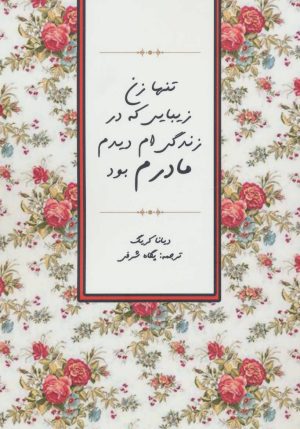 تنها زن
زیبایی که در
زندگی ام دیدم
مادرم بود
دیانا کرینگ
ترجمه: پگاه شرفی